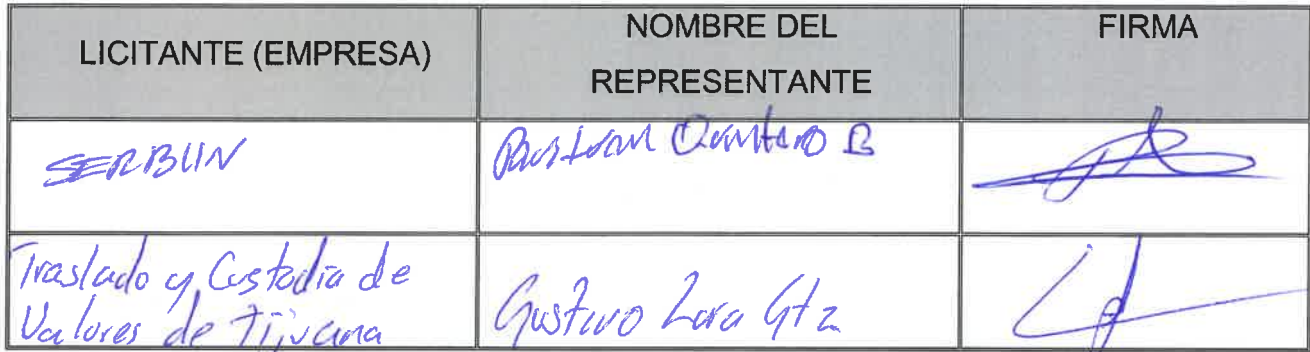 LICITANTE (EMPRESA)
NOMBRE DEL
REPRESENTANTE
FIRMA
SERBLIN
Quintero B
Traslado y Custodia de
Valores de Tijuana
Gustavo Lara Gtz